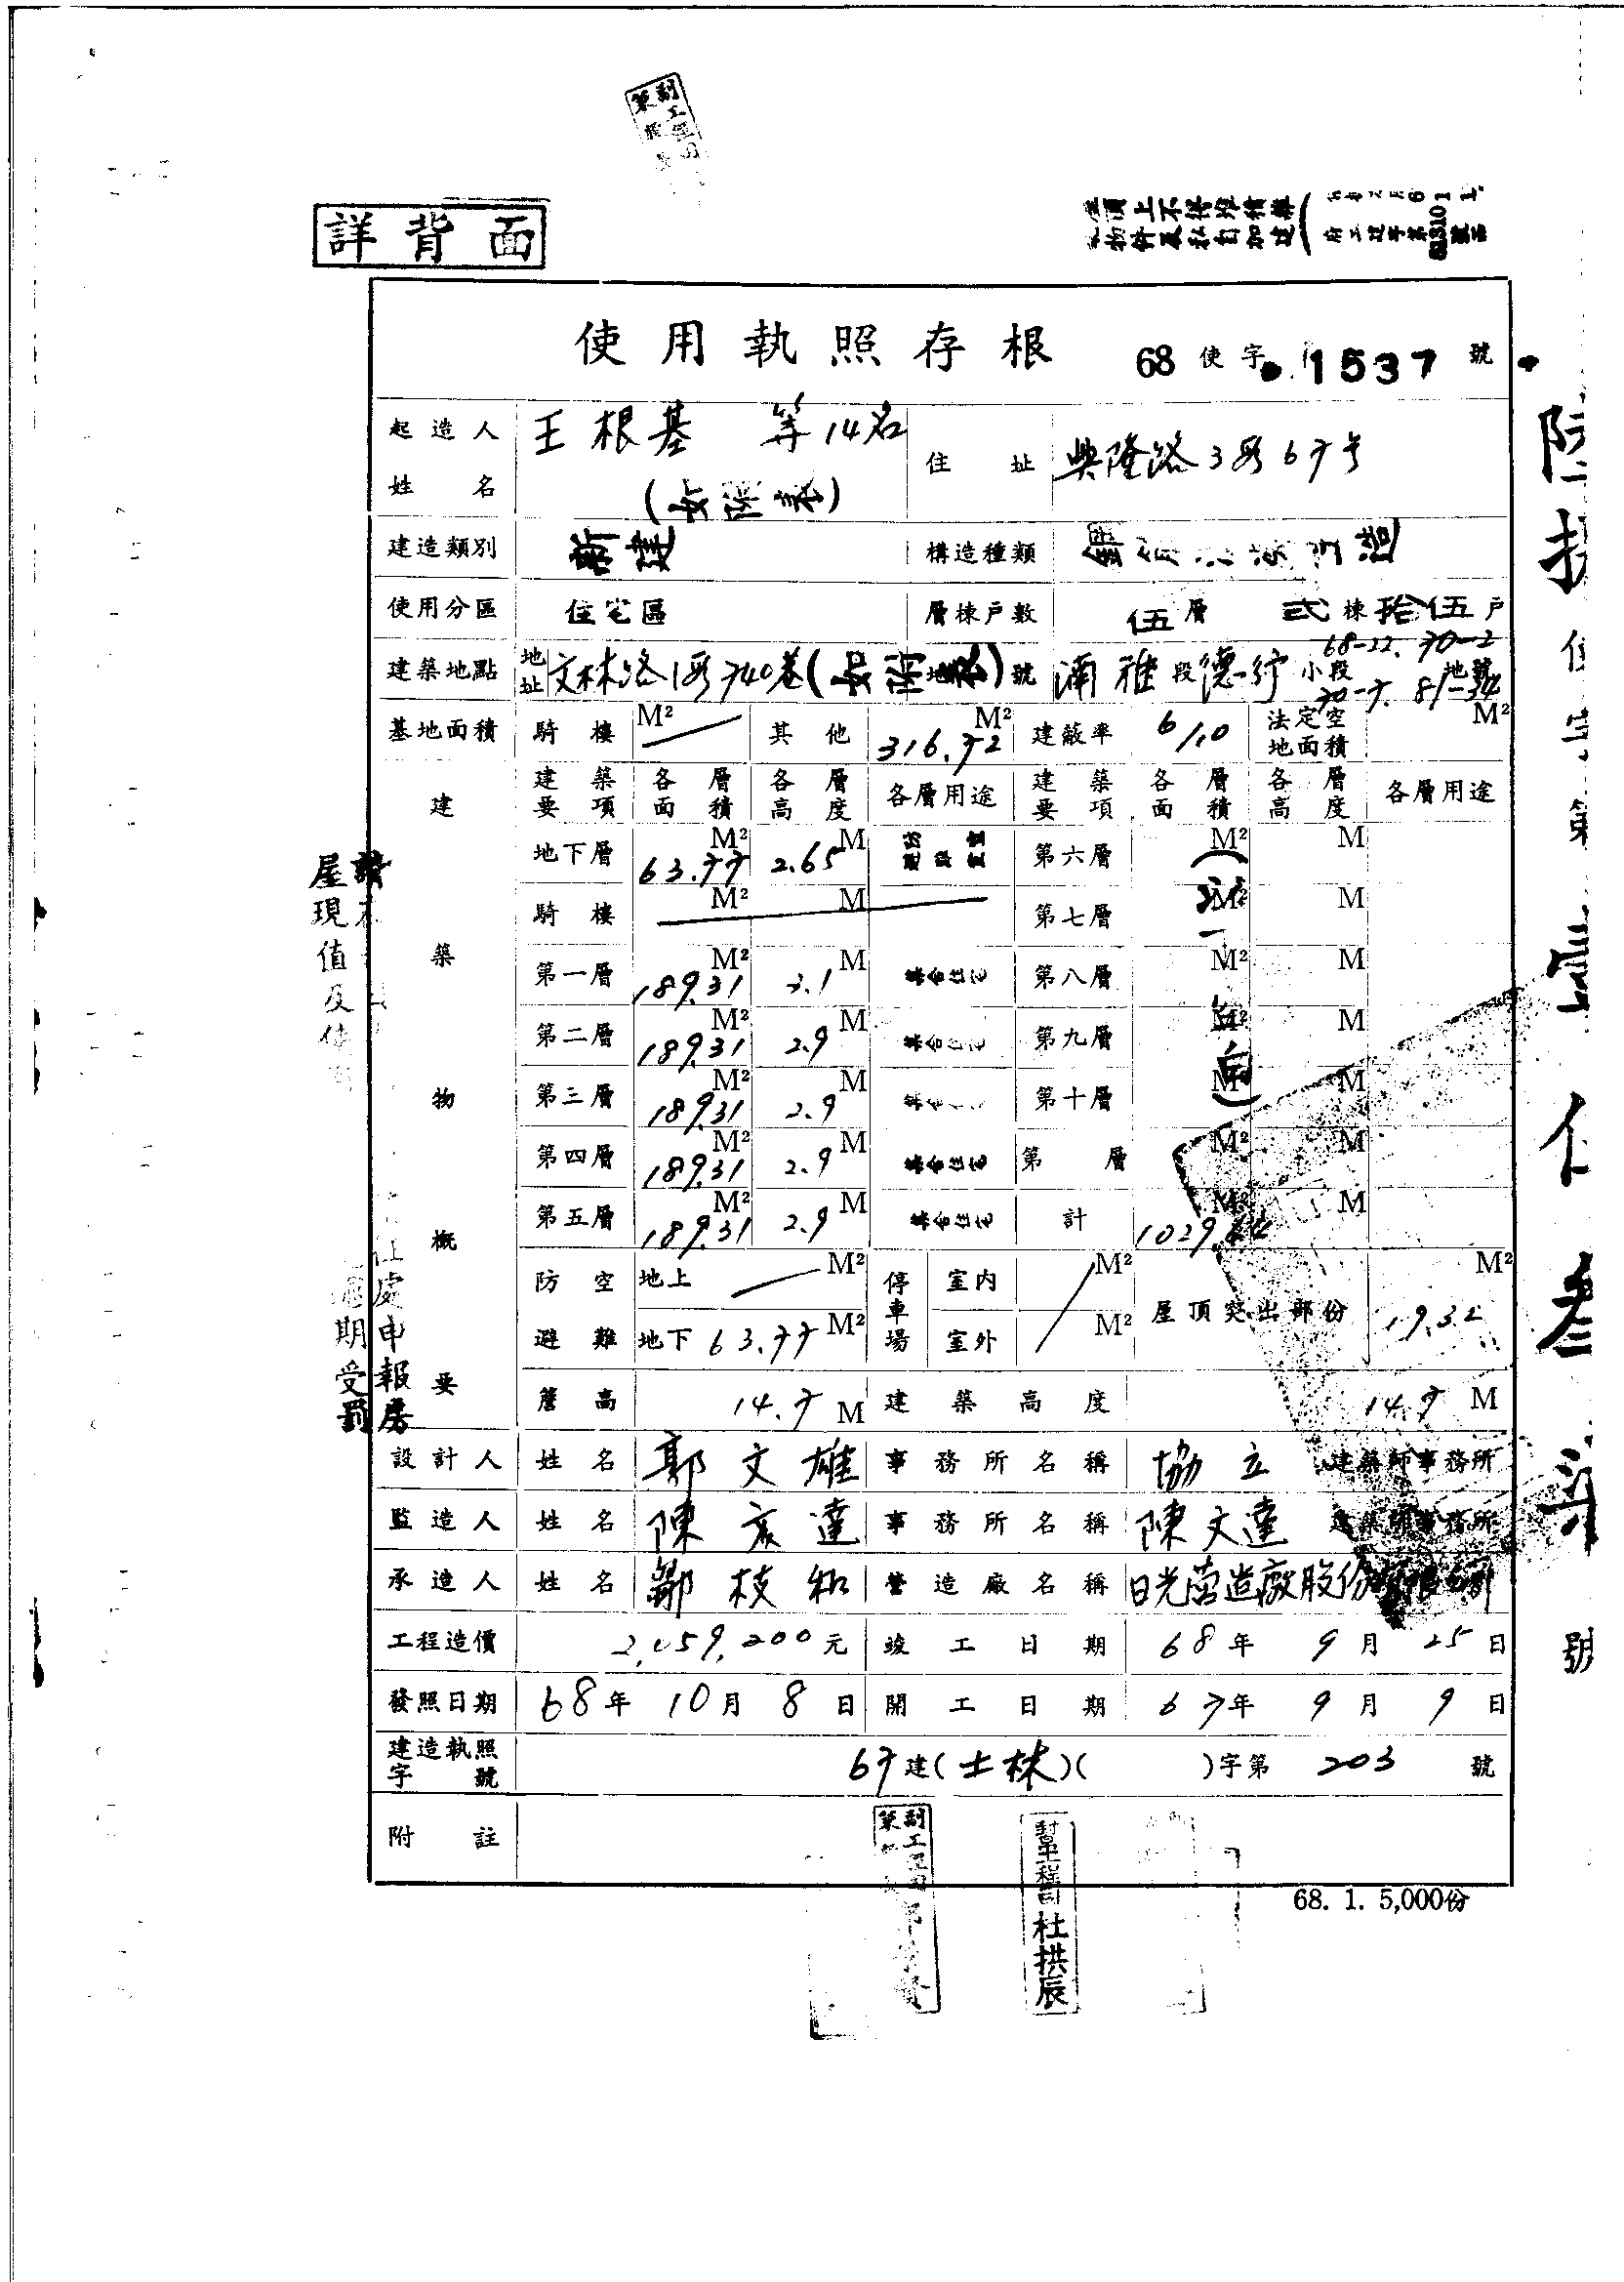 詳背面
使用執照存根 68使字 1537 號
起造人姓名 王根基 等14名
住址 興隆路3段67号
建造類別 新建 構造種類 造
使用分區 住宅區 層棟戶數 伍層 弍棟拾伍戶
建築地點 地址 文林路1段740巷( ) 地號 湳雅段德行小段 68-22. 70-2 70-7. 81-34 地號
基地面積 騎樓 M² 其他 316.72 M² 建蔽率 6/10 法定空地面積 M²
建築物概要
建築要項 各層面積 各層高度 各層用途 建築要項 各層面積 各層高度 各層用途
地下層 63.77 M² 2.65 M 第六層 M² M
騎樓 M² M 第七層 M² M
第一層 189.31 M² 3.1 M 集合住宅 第八層 M² M
第二層 189.31 M² 2.9 M 集合住宅 第九層 M² M
第三層 189.31 M² 2.9 M 第十層 M² M
第四層 189.31 M² 2.9 M 集合住宅 第 層 M² M
第五層 189.31 M² 2.9 M 集合住宅 計 1029. M² M
防空避難 地上 M² 停車場 室內 M² 屋頂突出部份 19.32 M²
地下 63.77 M² 室外 M²
簷高 14.7 M 建築高度 14.7 M
設計人 姓名 郭文雄 事務所名稱 協立 建築師事務所
監造人 姓名 陳文達 事務所名稱 陳文達 建築師事務所
承造人 姓名 鄒枝和 營造廠名稱 日光营造廠股份有限公司
工程造價 2,059,200元 竣工日期 68年9月25日
發照日期 68年10月8日 開工日期 67年9月9日
建造執照字號 67建(士林)( )字第 203 號
附註
68. 1. 5,000份
杜拱辰